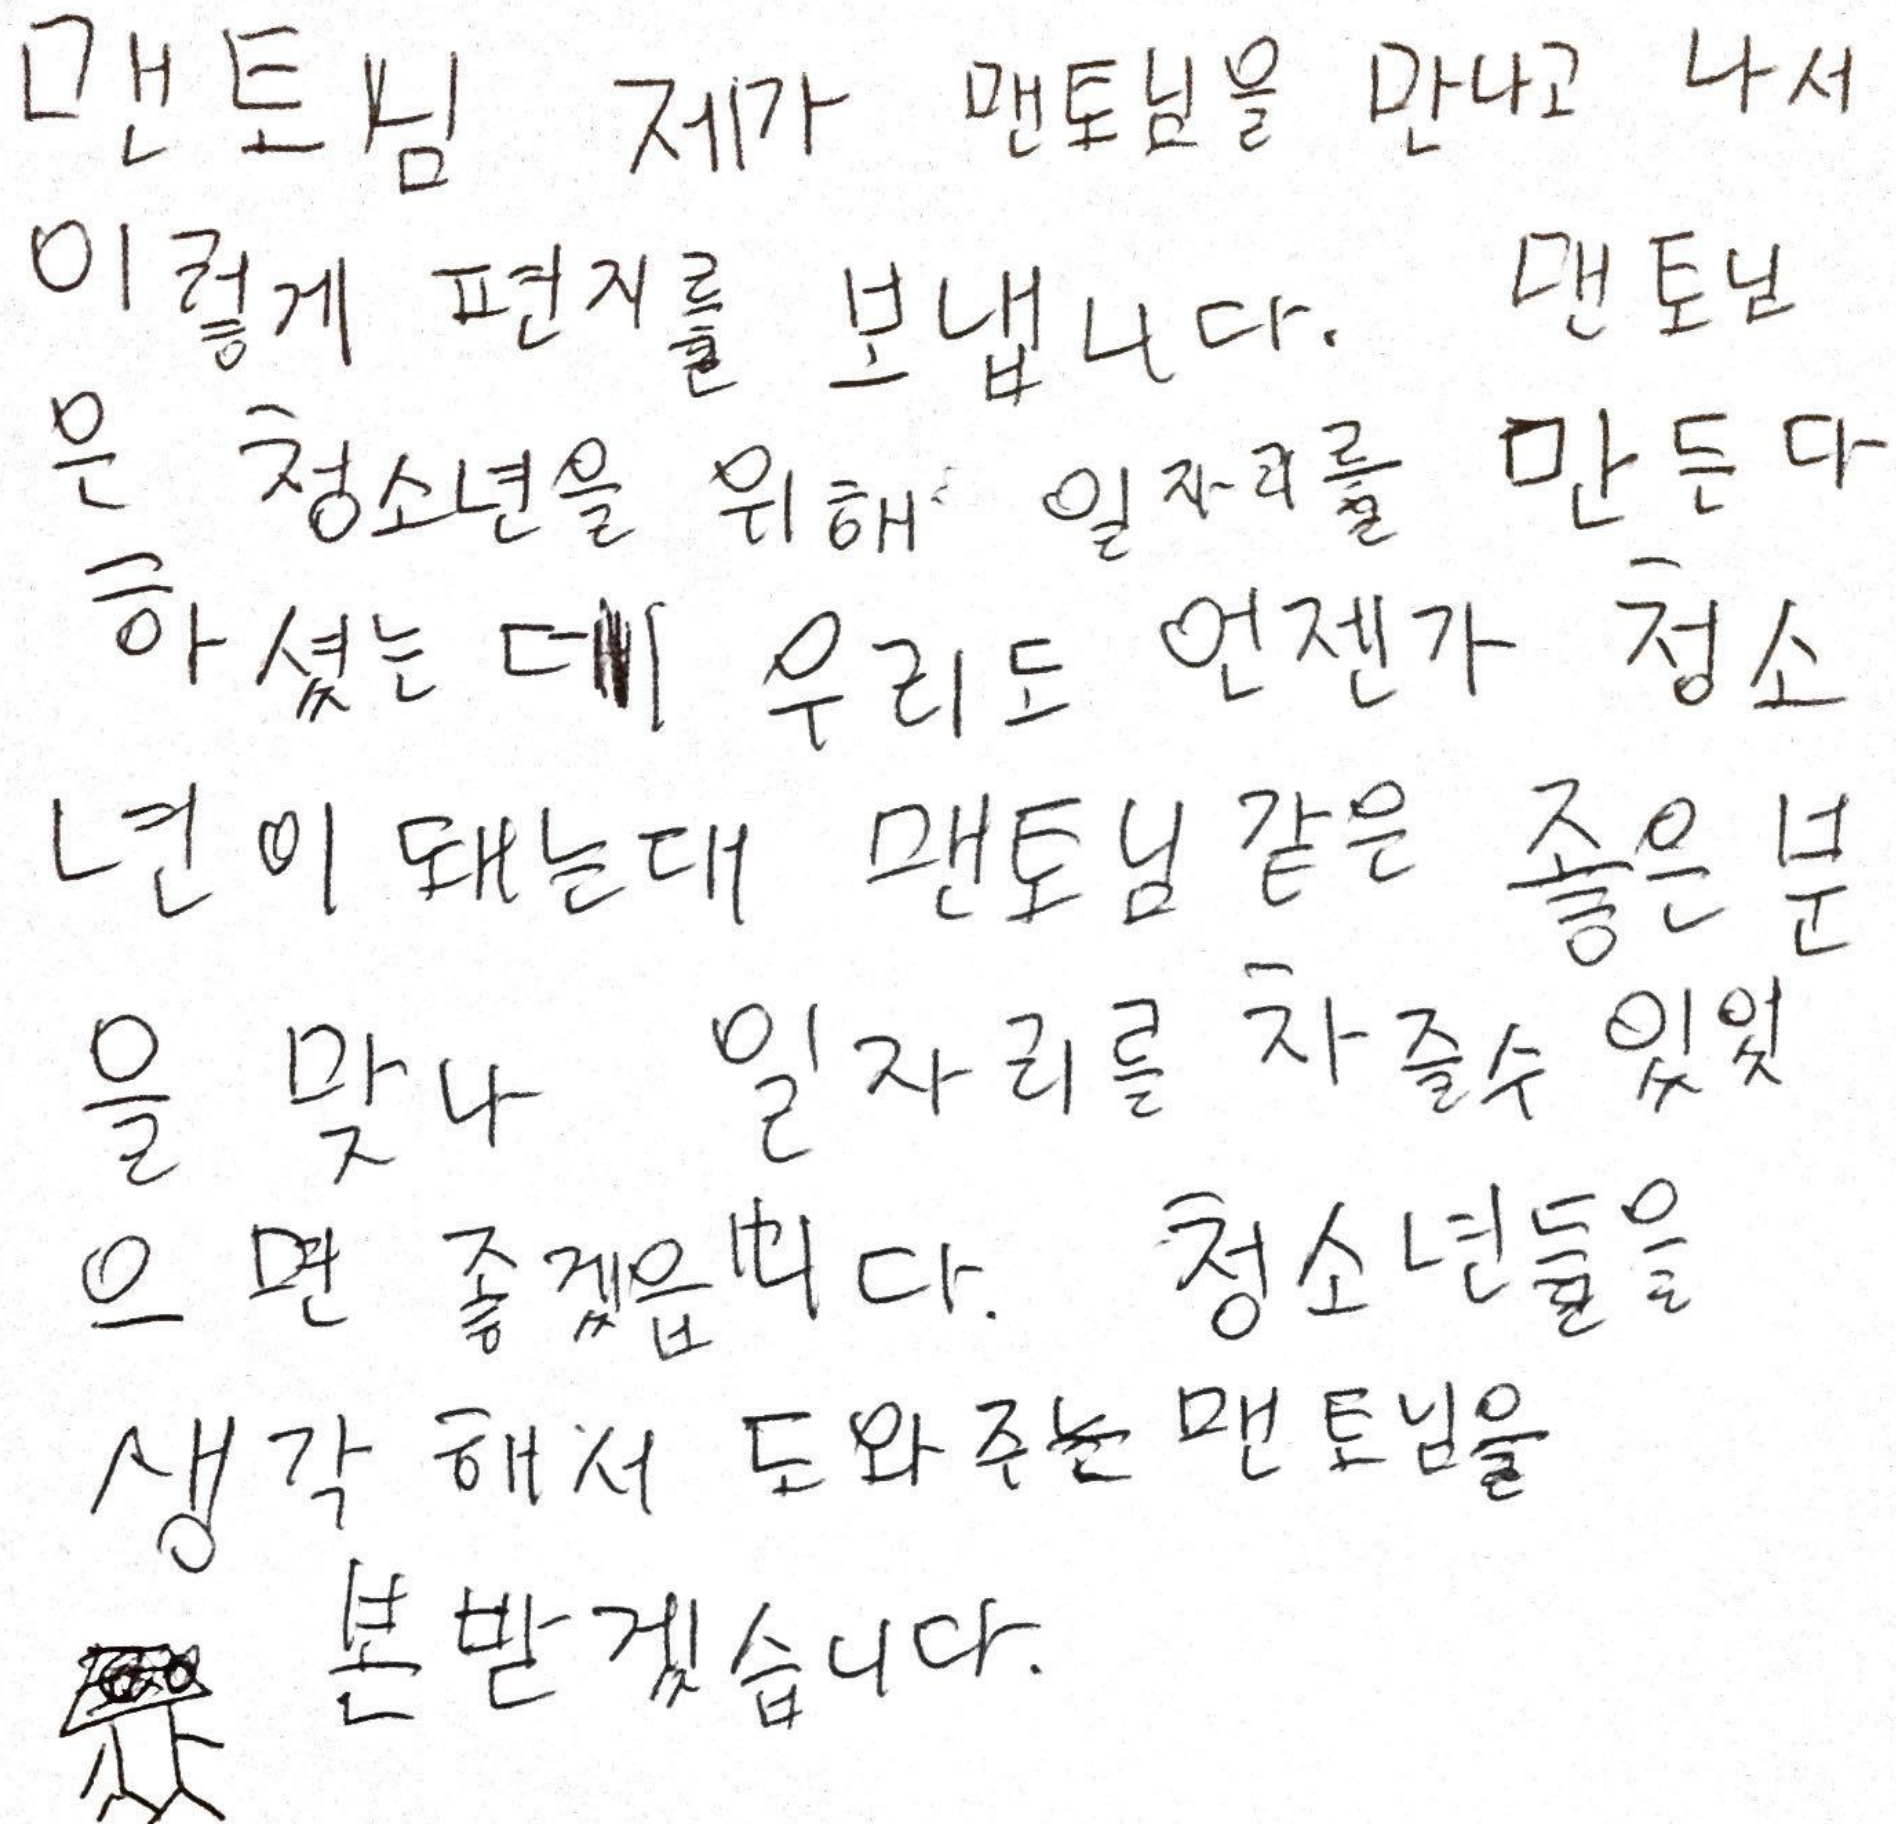 맨토님 제가 맨토님을 만나고 나서
이렇게 편지를 보냅니다. 맨토님
은 청소년을 위해 일자리를 만든다
하셨는데 우리도 언젠가 청소
년이 돼는대 맨토님 같은 좋은 분
을 맞나 일자리를 차즐수 있었
으면 좋겠읍니다. 청소년들을
생각해서 도와주는 맨토님을
본받겠습니다.